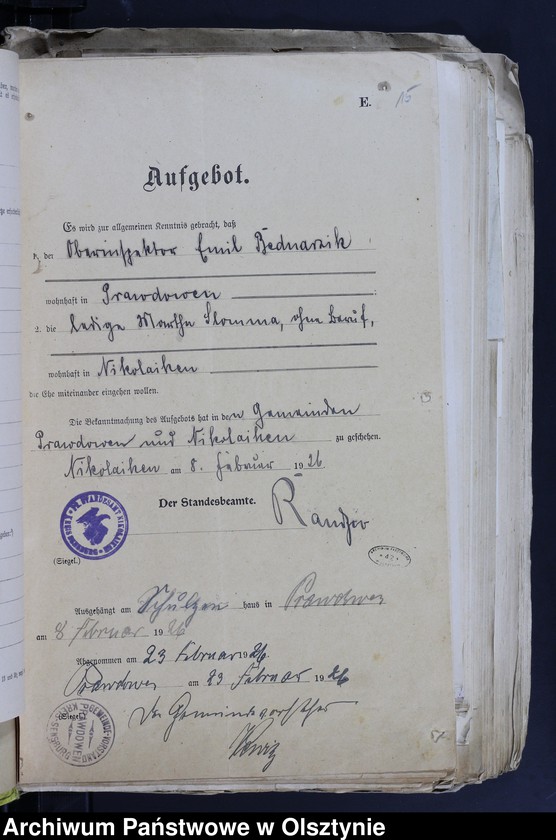 E. 15
Aufgebot.
Es wird zur allgemeinen Kenntnis gebracht, daß
1. der Oberinspektor Emil Bednarzik
wohnhaft in Prawdowen
2. die ledige Martha Slomma, ohne Beruf,
wohnhaft in Nikolaiken
die Ehe miteinander eingehen wollen.
Die Bekanntmachung des Aufgebots hat in den Gemeinden
Prawdowen und Nikolaiken zu geschehen.
Nikolaiken am 8. Februar 1926
Der Standesbeamte.
(Siegel.)
Ausgehängt am Schulzen haus in Prawdowen
am 8 Februar 1926
Abgenommen am 23 Februar 1926.
Prawdowen am 23 Februar 1926
(Siegel.) Der Gemeindevorsteher
GEMEINDE-VORSTAND PRAWDOWEN KREIS SENSBURG
Archiwum Państwowe w Olsztynie